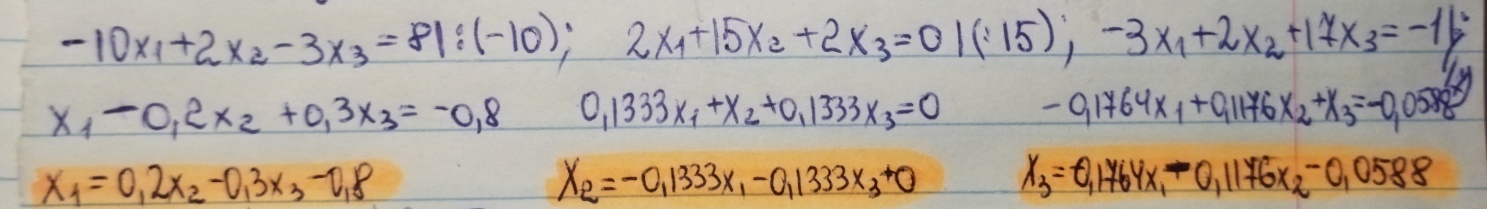 -10x₁+2x₂-3x₃=8|:(-10); 2x₁+15x₂+2x₃=0|(:15); -3x₁+2x₂+17x₃=-1|:
x₁-0,2x₂+0,3x₃=-0,8 0,1333x₁+x₂+0,1333x₃=0 -0,1764x₁+0,1176x₂+x₃=-0,0588
x₁=0,2x₂-0,3x₃-0,8 x₂=-0,1333x₁-0,1333x₃+0 x₃=0,1764x₁-0,1176x₂-0,0588